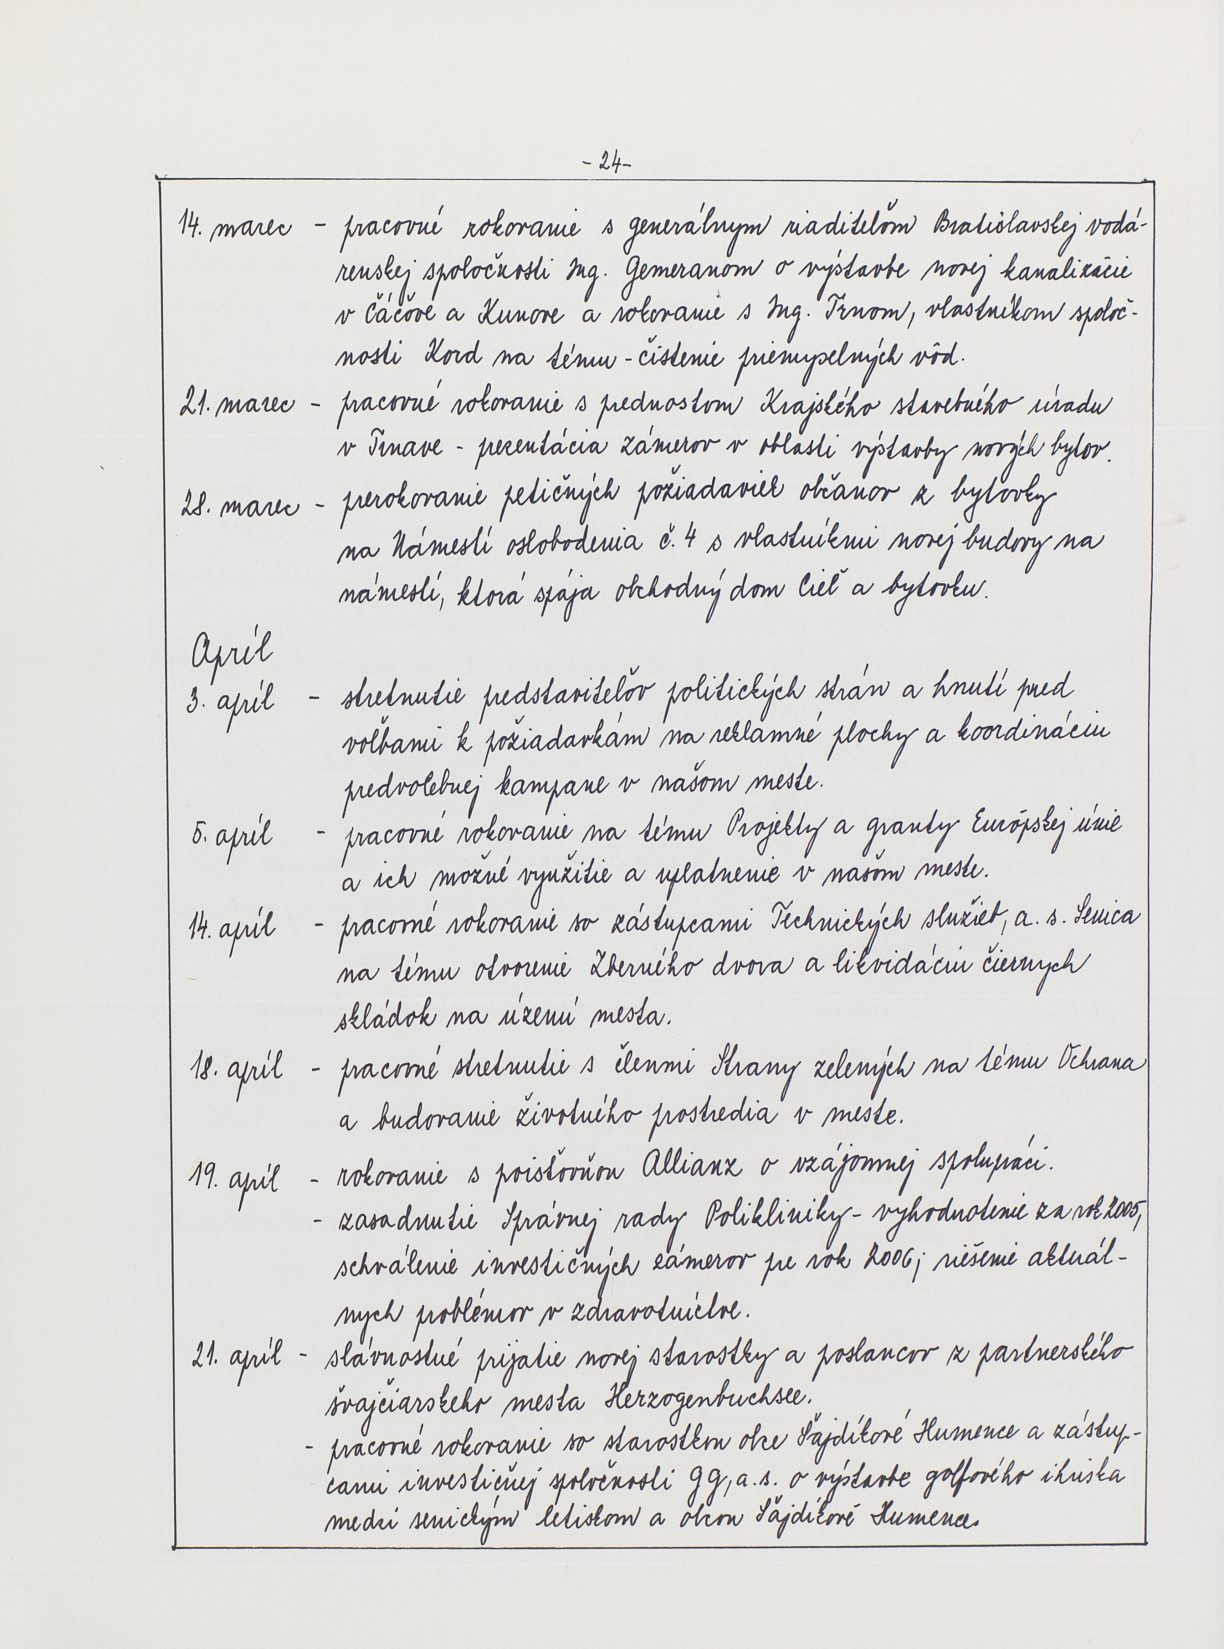 - 24 -
14. marec - pracovné rokovanie s generálnym riaditeľom Bratislavskej vodá-
renskej spoločnosti Ing. Gemeranom o výstavbe novej kanalizácie
v Čáčove a Kunove a rokovanie s Ing. Trnom, vlastníkom spoloč-
nosti Kord na tému - čistenie priemyselných vôd.
21. marec - pracovné rokovanie s prednostom Krajského stavebného úradu
v Trnave - prezentácia zámerov v oblasti výstavby nových bytov.
28. marec - prerokovanie petičných požiadaviek občanov z bytovky
na Námestí oslobodenia č. 4 s vlastníkmi novej budovy na
námestí, ktorá spája obchodný dom Cieľ a bytovku.
Apríl
3. apríl - stretnutie predstaviteľov politických strán a hnutí pred
voľbami k požiadavkám na reklamné plochy a koordináciu
predvolebnej kampane v našom meste.
5. apríl - pracovné rokovanie na tému Projekty a granty Európskej únie
a ich možné využitie a uplatnenie v našom meste.
14. apríl - pracovné rokovanie so zástupcami Technických služieb, a. s. Senica
na tému otvorenie Zberného dvora a likvidáciu čiernych
skládok na území mesta.
18. apríl - pracovné stretnutie s členmi Strany zelených na tému Ochrana
a budovanie životného prostredia v meste.
19. apríl - rokovanie s poisťovňou Allianz o vzájomnej spolupráci.
- zasadnutie Správnej rady Polikliniky - vyhodnotenie za rok 2005,
schválenie investičných zámerov pre rok 2006; riešenie aktuál-
nych problémov v zdravotníctve.
21. apríl - slávnostné prijatie novej starostky a poslancov z partnerského
švajčiarskeho mesta Herzogenbuchsee.
- pracovné rokovanie so starostkou obce Šajdíkové Humence a zástup-
cami investičnej spoločnosti GG, a. s. o výstavbe golfového ihriska
medzi senickým letiskom a obcou Šajdíkové Humence.